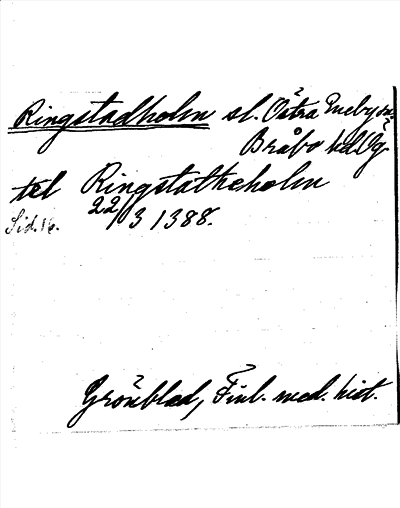 Ringstadholm sl. Östra Eneby sn.
Bråbo hd Ög.
tel Ringstatheholm
22/3 1388.
Sid. 16.
Grönblad, Finl. med. hist.